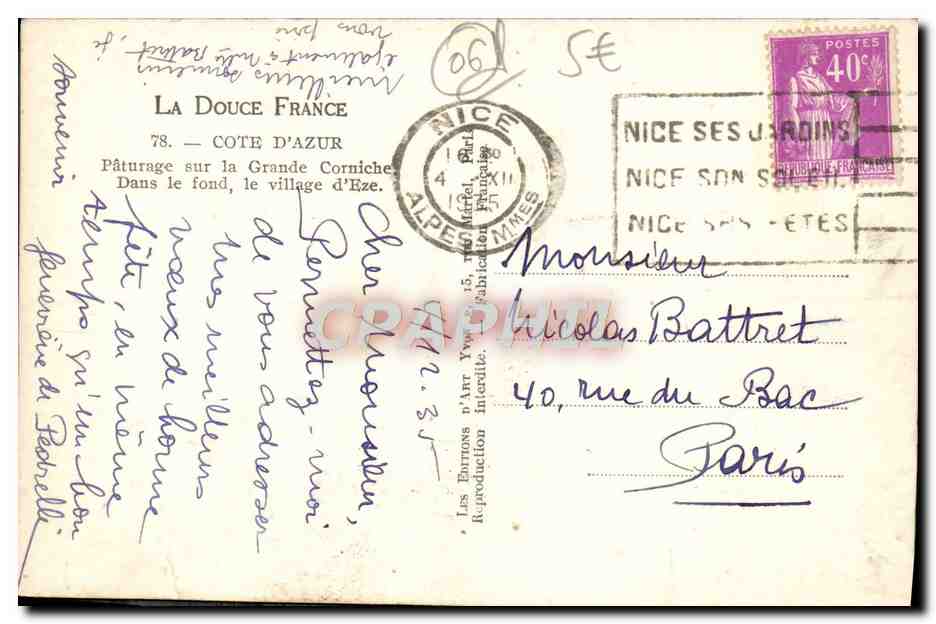 Meilleurs souvenirs
également à Mlle Battret, je
vous prie
90
5€
LA DOUCE FRANCE
78. — COTE D'AZUR
Pâturage sur la Grande Corniche
Dans le fond, le village d'Eze.
NICE
4 XII
ALPES MMES
POSTES
40c
REPUBLIQUE FRANÇAISE
NICE SES JARDINS
NICE SON SOLEIL
NICE SES FETES
4.12.35
Cher Monsieur,
Permettez-moi
de vous adresser
mes meilleurs
vœux de bonne
fête, en même
temps qu'un bon
souvenir
Geneviève de Pedrelli
LES EDITIONS D'ART Yvon, 15, rue Martel, Paris
Reproduction Interdite. Fabrication Française
Monsieur
Nicolas Battret
40, rue du Bac
Paris
CRAPHIL